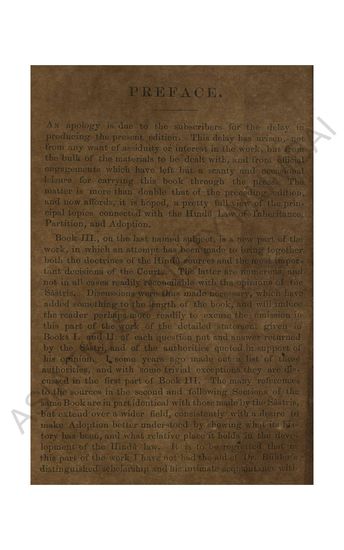 PREFACE.
An apology is due to the subscribers for the delay in
producing the present edition. This delay has arisen, not
from any want of assiduity or interest in the work, but from
the bulk of the materials to be dealt with, and from official
engagements which have left but a scanty and occasional
leisure for carrying this book through the press. The
matter is more than double that of the preceding edition,
and now affords, it is hoped, a pretty full view of the prin-
cipal topics connected with the Hindû Law of Inheritance,
Partition, and Adoption.
Book III., on the last named subject, is a new part of the
work, in which an attempt has been made to bring together
both the doctrines of the Hindû sources and the most impor-
tant decisions of the Courts. The latter are numerous, and
not in all cases readily reconcilable with the opinions of the
Sâstris. Discussions were thus made necessary, which have
added something to the length of the book, and will induce
the reader perhaps more readily to excuse the omission in
this part of the work of the detailed statement given in
Books I. and II. of each question put and answer returned
by the Sâstri and of the authorities quoted in support of
his opinion. I some years ago made out a list of these
authorities, and with some trivial exceptions they are dis-
cussed in the first part of Book III. The many references
to the sources in the second and following Sections of the
same Book are in part identical with those made by the Sâstris,
but extend over a wider field, consistently with a desire to
make Adoption better understood by showing what its his-
tory has been, and what relative place it holds in the deve-
lopment of the Hindû law. It is to be regretted that in
this part of the work I have not had the aid of Dr. Bühler's
distinguished scholarship and his intimate acquaintance with